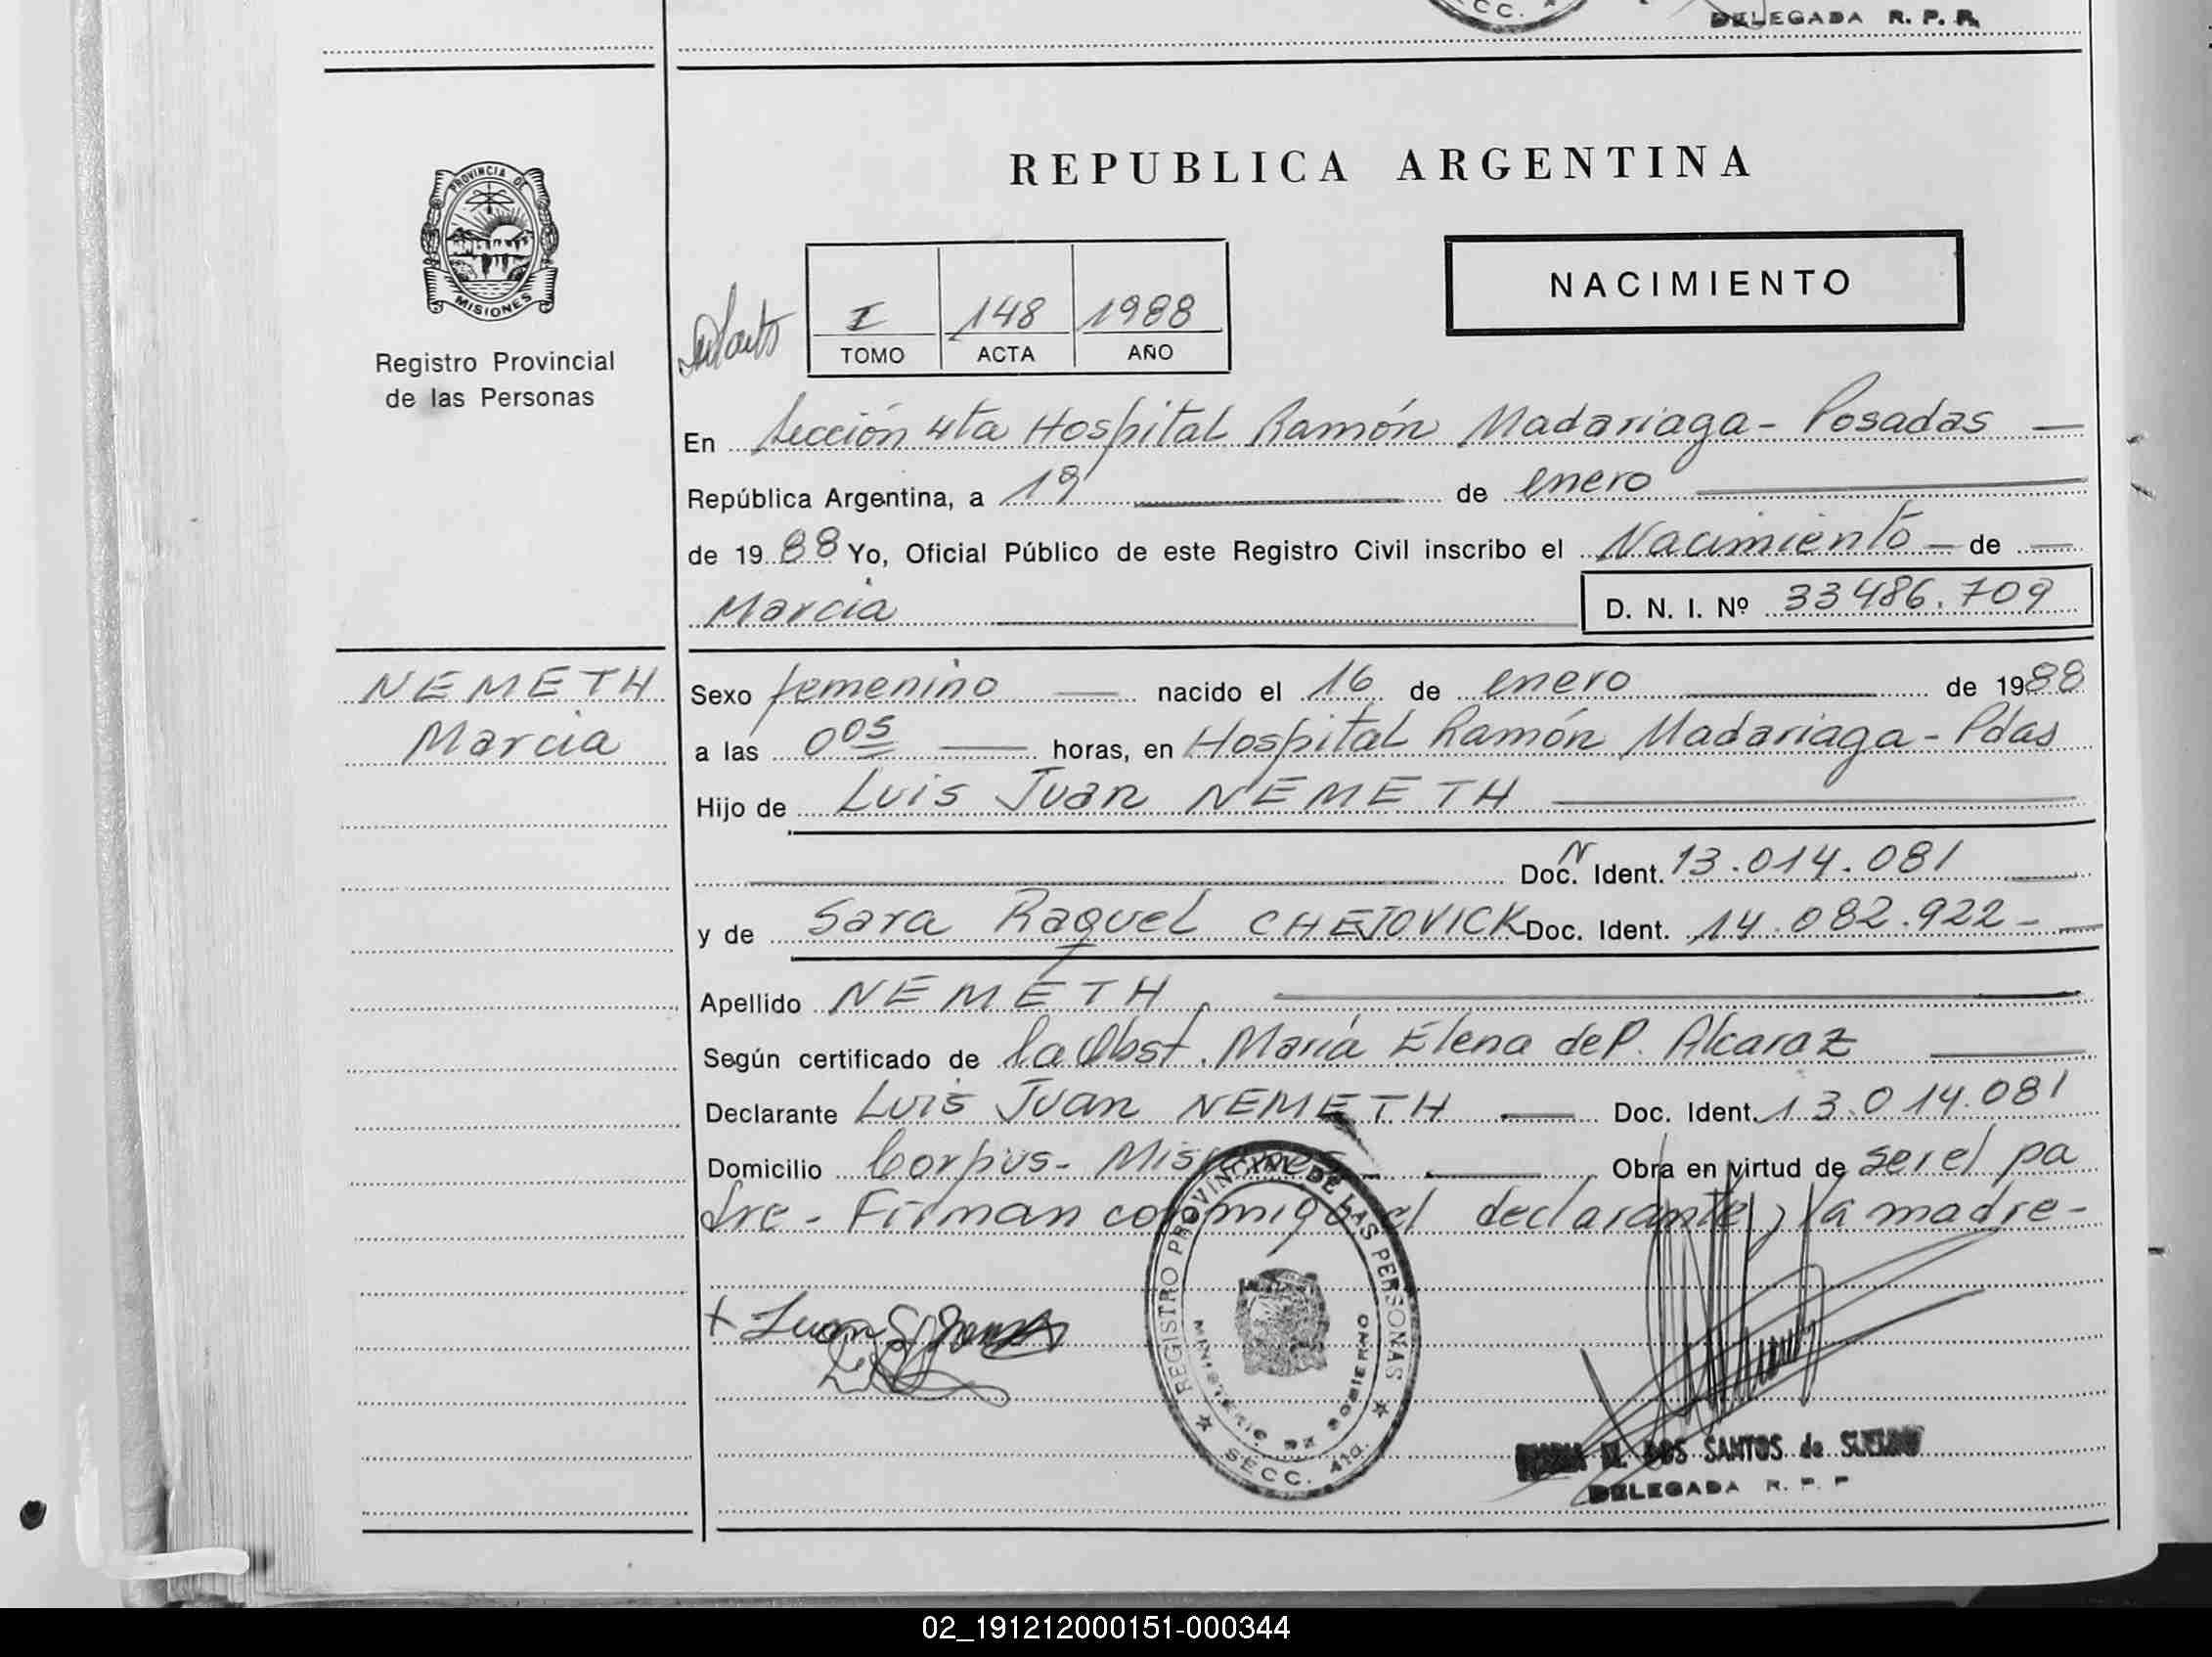 SECC.
DELEGADA R. P. P.
PROVINCIA DE
MISIONES
Registro Provincial
de las Personas
REPUBLICA ARGENTINA
NACIMIENTO
I 148 1988
TOMO ACTA AÑO
En Sección 4ta Hospital Ramón Madariaga - Posadas —
República Argentina, a 19 — de enero —
de 1988 Yo, Oficial Público de este Registro Civil inscribo el Nacimiento — de —
Marcia — D. N. I. Nº 33486.709
NEMETH
Marcia
Sexo femenino — nacido el 16 de enero — de 1988
a las 0 05 — horas, en Hospital Ramón Madariaga - Pdas
Hijo de Luis Juan NEMETH —
— Doc. Ident. 13.014.081 —
y de Sara Raquel CHEJOVICK Doc. Ident. 14.082.922 —
Apellido NEMETH —
Según certificado de la Obst. María Elena de P. Alcaraz —
Declarante Luis Juan NEMETH — Doc. Ident. 13.014.081
Domicilio Corpus - Misiones — Obra en virtud de ser el pa
dre - Firman conmigo el declarante y la madre -
REGISTRO PROVINCIAL DE LAS PERSONAS
MINISTERIO DE GOBIERNO
SECC. 4ta.
DOS SANTOS de
DELEGADA R. P. P
02_191212000151-000344